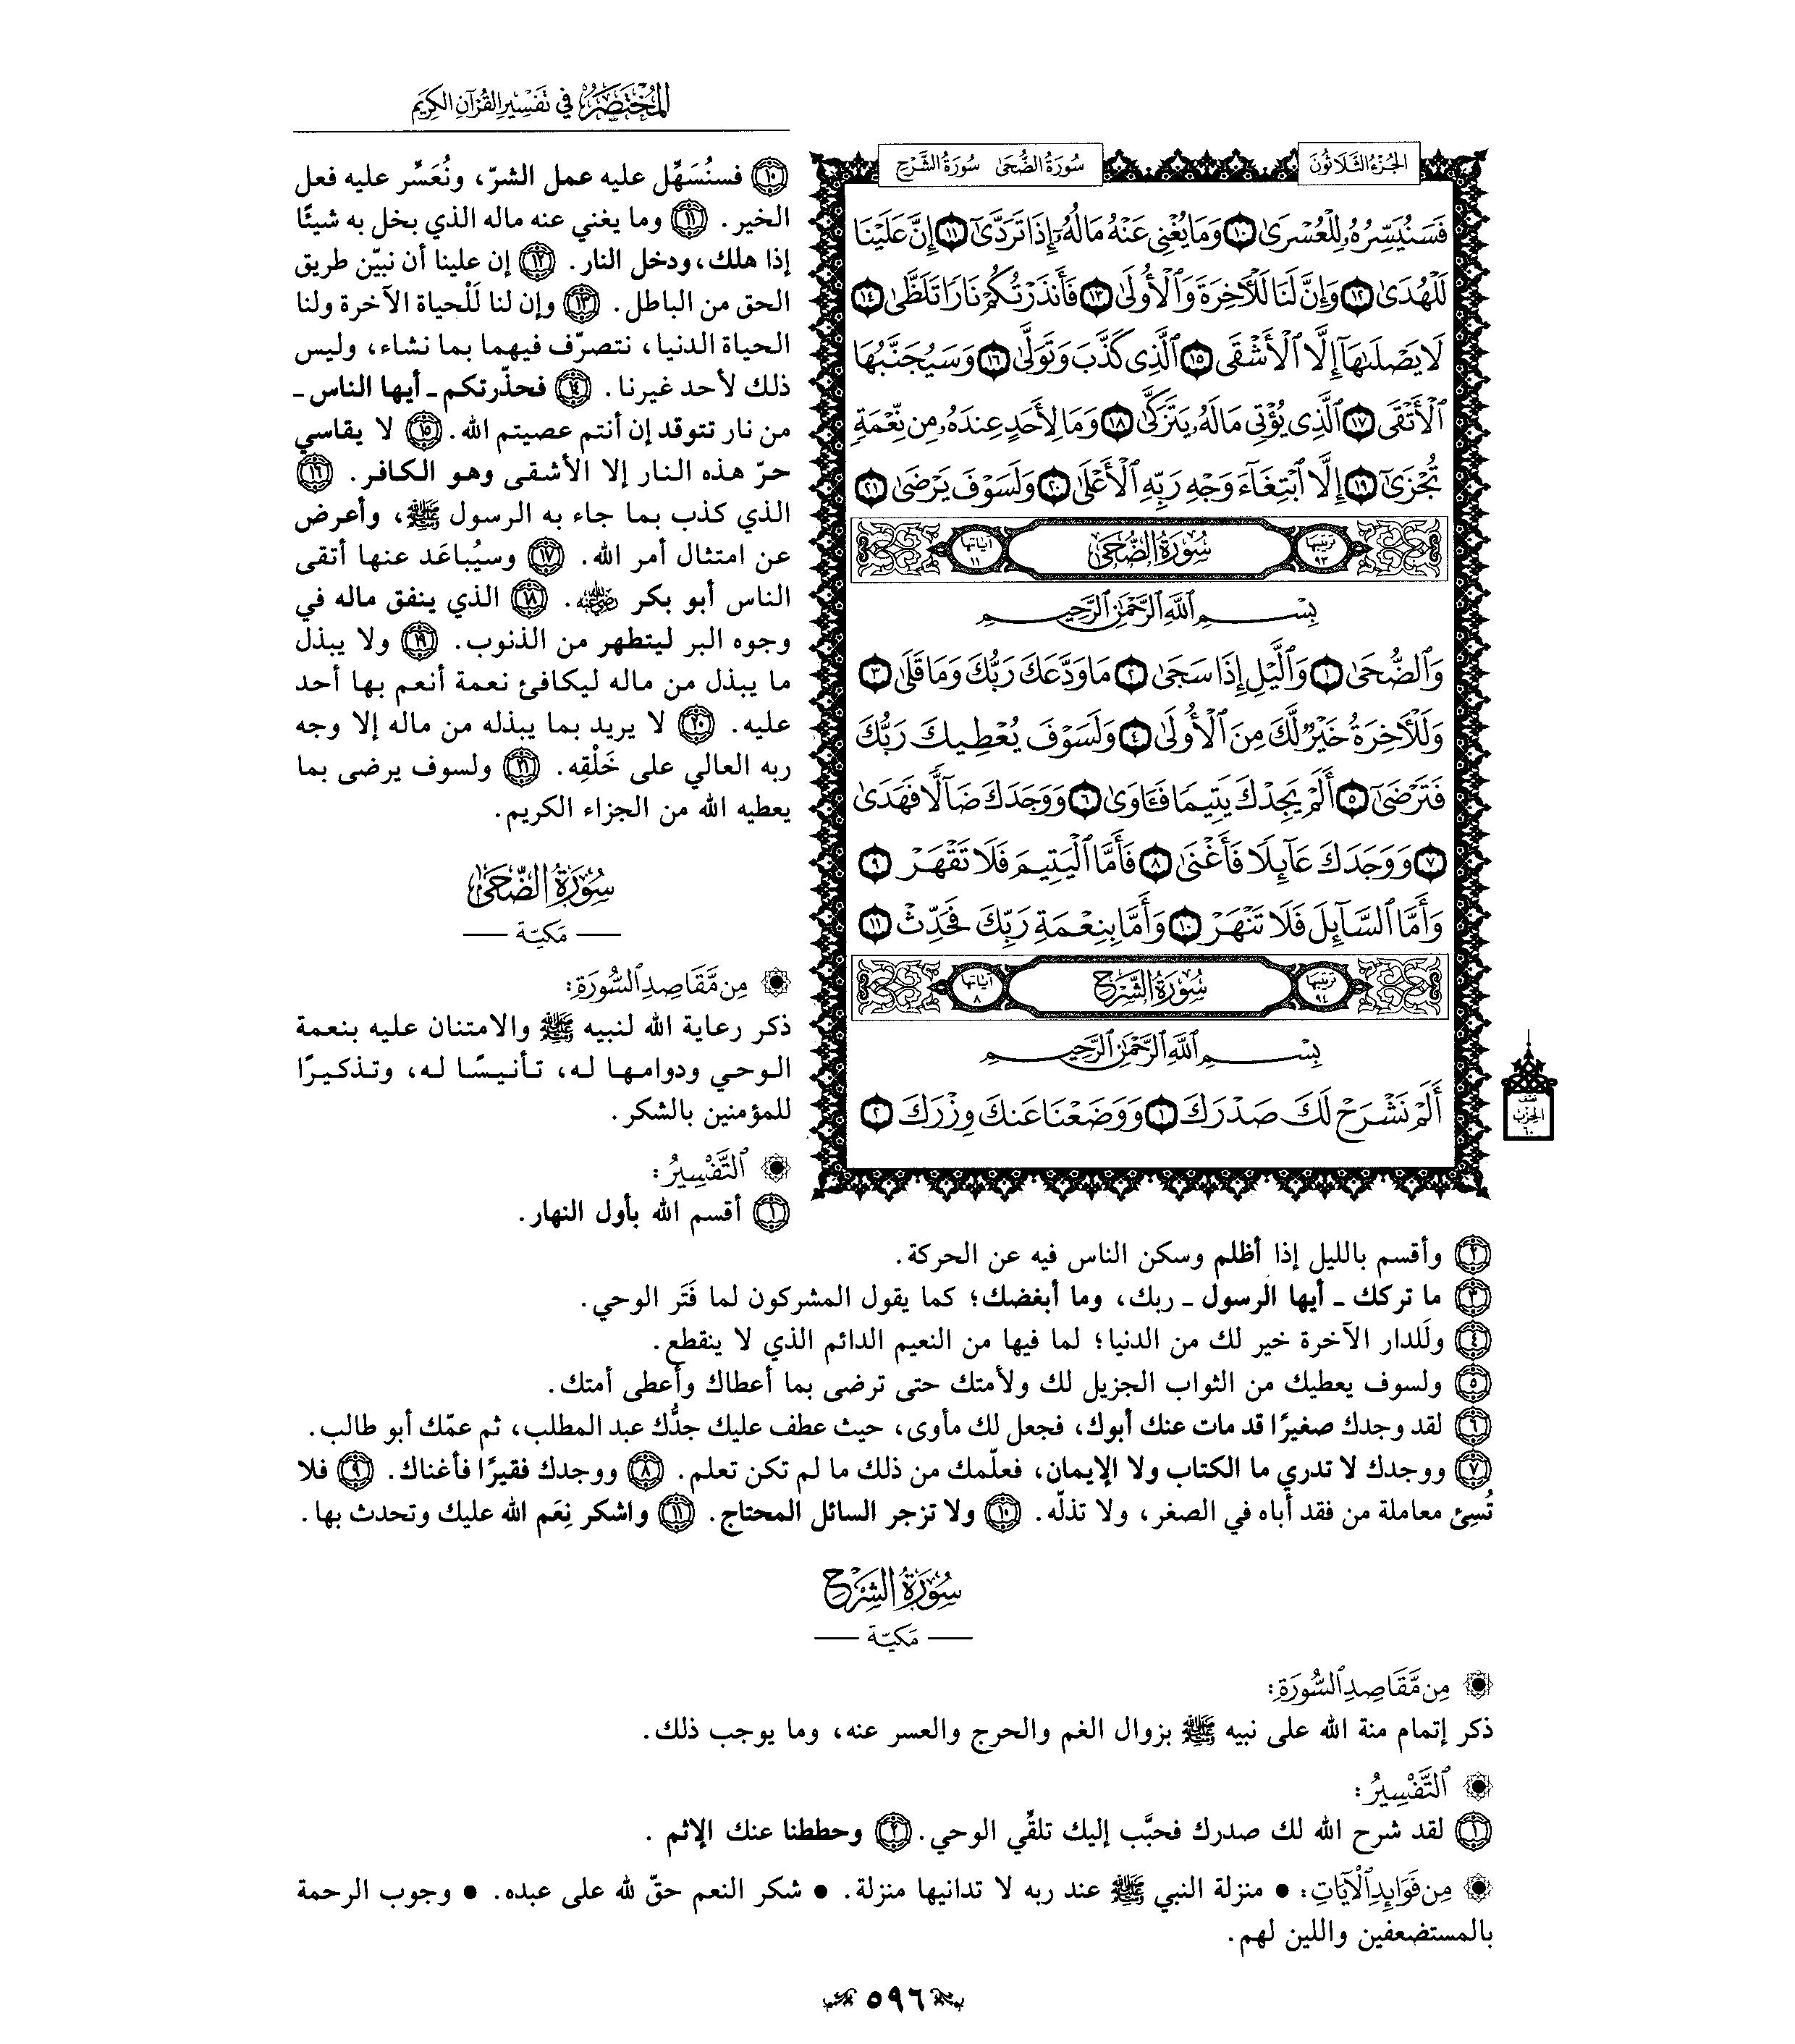 المُخْتَصَرُ فِي تَفْسِيرِ القُرْآنِ الكَرِيمِ
الجُزْءُ الثَّلَاثُونَ
سُورَةُ الضُّحَى سُورَةُ الشَّرْحِ
فَسَنُيَسِّرُهُۥ لِلْعُسْرَىٰ ١٠ وَمَا يُغْنِي عَنْهُ مَالُهُۥٓ إِذَا تَرَدَّىٰٓ ١١ إِنَّ عَلَيْنَا
لَلْهُدَىٰ ١٢ وَإِنَّ لَنَا لَلْأٓخِرَةَ وَٱلْأُولَىٰ ١٣ فَأَنذَرْتُكُمْ نَارًا تَلَظَّىٰ ١٤
لَا يَصْلَىٰهَآ إِلَّا ٱلْأَشْقَى ١٥ ٱلَّذِي كَذَّبَ وَتَوَلَّىٰ ١٦ وَسَيُجَنَّبُهَا
ٱلْأَتْقَى ١٧ ٱلَّذِي يُؤْتِي مَالَهُۥ يَتَزَكَّىٰ ١٨ وَمَا لِأَحَدٍ عِندَهُۥ مِن نِّعْمَةٍ
تُجْزَىٰٓ ١٩ إِلَّا ٱبْتِغَآءَ وَجْهِ رَبِّهِ ٱلْأَعْلَىٰ ٢٠ وَلَسَوْفَ يَرْضَىٰ ٢١
ترتيبها ٩٣ سُورَةُ الضُّحَى آياتها ١١
بِسْمِ ٱللَّهِ ٱلرَّحْمَٰنِ ٱلرَّحِيمِ
وَٱلضُّحَىٰ ١ وَٱلَّيْلِ إِذَا سَجَىٰ ٢ مَا وَدَّعَكَ رَبُّكَ وَمَا قَلَىٰ ٣
وَلَلْأٓخِرَةُ خَيْرٌ لَّكَ مِنَ ٱلْأُولَىٰ ٤ وَلَسَوْفَ يُعْطِيكَ رَبُّكَ
فَتَرْضَىٰٓ ٥ أَلَمْ يَجِدْكَ يَتِيمًا فَـَٔاوَىٰ ٦ وَوَجَدَكَ ضَآلًّا فَهَدَىٰ
٧ وَوَجَدَكَ عَآئِلًا فَأَغْنَىٰ ٨ فَأَمَّا ٱلْيَتِيمَ فَلَا تَقْهَرْ ٩
وَأَمَّا ٱلسَّآئِلَ فَلَا تَنْهَرْ ١٠ وَأَمَّا بِنِعْمَةِ رَبِّكَ فَحَدِّثْ ١١
ترتيبها ٩٤ سُورَةُ الشَّرْحِ آياتها ٨
بِسْمِ ٱللَّهِ ٱلرَّحْمَٰنِ ٱلرَّحِيمِ
أَلَمْ نَشْرَحْ لَكَ صَدْرَكَ ١ وَوَضَعْنَا عَنكَ وِزْرَكَ ٢
نصف
الحزب
٦٠
١٠ فسنُسَهِّل عليه عمل الشرّ، ونُعَسِّر عليه فعل
الخير. ١١ وما يغني عنه ماله الذي بخل به شيئًا
إذا هلك، ودخل النار. ١٢ إن علينا أن نبيّن طريق
الحق من الباطل. ١٣ وإن لنا لَلْحياة الآخرة ولنا
الحياة الدنيا، نتصرّف فيهما بما نشاء، وليس
ذلك لأحد غيرنا. ١٤ فحذّرتكم ـ أيها الناس ـ
من نار تتوقد إن أنتم عصيتم الله. ١٥ لا يقاسي
حرّ هذه النار إلا الأشقى وهو الكافر. ١٦
الذي كذب بما جاء به الرسول ﷺ، وأعرض
عن امتثال أمر الله. ١٧ وسيُباعَد عنها أتقى
الناس أبو بكر رضي الله عنه. ١٨ الذي ينفق ماله في
وجوه البر ليتطهر من الذنوب. ١٩ ولا يبذل
ما يبذل من ماله ليكافئ نعمة أنعم بها أحد
عليه. ٢٠ لا يريد بما يبذله من ماله إلا وجه
ربه العالي على خَلْقِه. ٢١ ولسوف يرضى بما
يعطيه الله من الجزاء الكريم.
سُورَةُ الضُّحَى
— مَكيّة —
مِن مَّقَاصِدِ ٱلسُّورَةِ:
ذكر رعاية الله لنبيه ﷺ والامتنان عليه بنعمة
الوحي ودوامها له، تأنيسًا له، وتذكيرًا
للمؤمنين بالشكر.
ٱلتَّفْسِيرُ:
١ أقسم الله بأول النهار.
٢ وأقسم بالليل إذا أظلم وسكن الناس فيه عن الحركة.
٣ ما تركك ـ أيها الرسول ـ ربك، وما أبغضك؛ كما يقول المشركون لما فَتَر الوحي.
٤ ولَلدار الآخرة خير لك من الدنيا؛ لما فيها من النعيم الدائم الذي لا ينقطع.
٥ ولسوف يعطيك من الثواب الجزيل لك ولأمتك حتى ترضى بما أعطاك وأعطى أمتك.
٦ لقد وجدك صغيرًا قد مات عنك أبوك، فجعل لك مأوى، حيث عطف عليك جدُّك عبد المطلب، ثم عمّك أبو طالب.
٧ ووجدك لا تدري ما الكتاب ولا الإيمان، فعلّمك من ذلك ما لم تكن تعلم. ٨ ووجدك فقيرًا فأغناك. ٩ فلا
تُسِئ معاملة من فقد أباه في الصغر، ولا تذلّه. ١٠ ولا تزجر السائل المحتاج. ١١ واشكر نِعَم الله عليك وتحدث بها.
سُورَةُ الشَّرْحِ
— مَكيّة —
مِن مَّقَاصِدِ ٱلسُّورَةِ:
ذكر إتمام منة الله على نبيه ﷺ بزوال الغم والحرج والعسر عنه، وما يوجب ذلك.
ٱلتَّفْسِيرُ:
١ لقد شرح الله لك صدرك فحبَّب إليك تلقِّي الوحي. ٢ وحططنا عنك الإثم .
مِن فَوَائِدِ ٱلْآيَاتِ: • منزلة النبي ﷺ عند ربه لا تدانيها منزلة. • شكر النعم حقّ لله على عبده. • وجوب الرحمة
بالمستضعفين واللين لهم.
٥٩٦